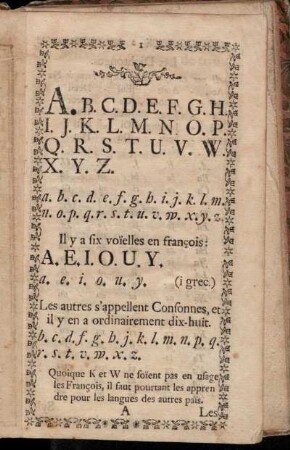 1
A. B. C. D. E. F. G. H.
I. J. K. L. M. N O. P
Q. R. S. T. U. V. W.
X. Y. Z.
a. b. c. d. e. f. g. h. i. j. k. l. m.
n. o. p. q. r. s. t. u. v. w. x. y. z.
Il y a ſix voïelles en françois:
A. E. I. O. U. Y.
a. e. i. o. u. y. (i grec.)
Les autres s'appellent Conſonnes, et
il y en a ordinairement dix-huit.
b. c. d. f. g. h. j. k. l. m. n. p. q.
r. s. t. v. w. x. z.
Quoique K et W ne ſoïent pas en uſage
les François, il faut pourtant les appren
dre pour les langues des autres païs.
A Les